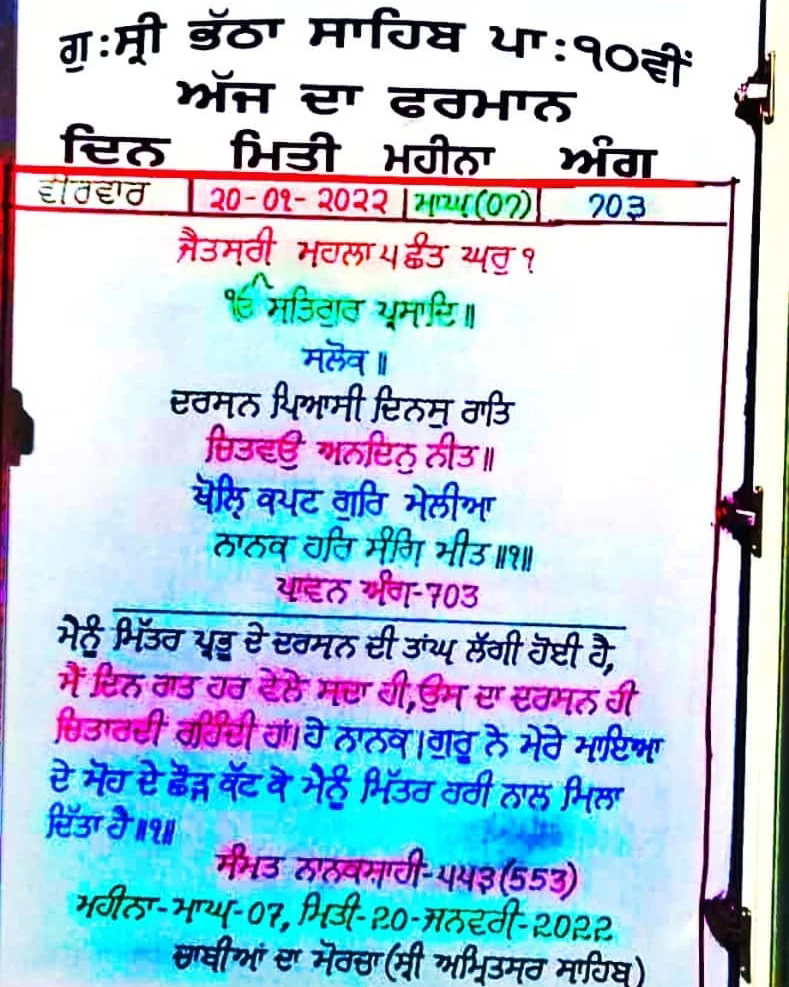 ਗੁ:ਸ੍ਰੀ ਭੱਠਾ ਸਾਹਿਬ ਪਾ:੧੦ਵੀਂ
ਅੱਜ ਦਾ ਫਰਮਾਨ
ਦਿਨ ਮਿਤੀ ਮਹੀਨਾ ਅੰਗ
ਵੀਰਵਾਰ 20-01-2022 ਮਾਘ(07) 703
ਜੈਤਸਰੀ ਮਹਲਾ ੫ ਛੰਤ ਘਰੁ ੧
ੴ ਸਤਿਗੁਰ ਪ੍ਰਸਾਦਿ॥
ਸਲੋਕ॥
ਦਰਸਨ ਪਿਆਸੀ ਦਿਨਸੁ ਰਾਤਿ
ਚਿਤਵਉ ਅਨਦਿਨੁ ਨੀਤ॥
ਖੋਲਿ੍ ਕਪਟ ਗੁਰਿ ਮੇਲੀਆ
ਨਾਨਕ ਹਰਿ ਸੰਗਿ ਮੀਤ॥੧॥
ਪਾਵਨ ਅੰਗ-703
ਮੈਨੂੰ ਮਿੱਤਰ ਪ੍ਰਭੂ ਦੇ ਦਰਸਨ ਦੀ ਤਾਂਘ ਲੱਗੀ ਹੋਈ ਹੈ,
ਮੈਂ ਦਿਨ ਰਾਤ ਹਰ ਵੇਲੇ ਸਦਾ ਹੀ,ਉਸ ਦਾ ਦਰਸਨ ਹੀ
ਚਿਤਾਰਦੀ ਰਹਿੰਦੀ ਹਾਂ।ਹੇ ਨਾਨਕ।ਗੁਰੂ ਨੇ ਮੇਰੇ ਮਾਇਆ
ਦੇ ਮੋਹ ਦੇ ਛੌੜ ਕੱਟ ਕੇ ਮੈਨੂੰ ਮਿੱਤਰ ਹਰੀ ਨਾਲ ਮਿਲਾ
ਦਿੱਤਾ ਹੈ॥੧॥
ਸੰਮਤ ਨਾਨਕਸਾਹੀ-੫੫੩(553)
ਮਹੀਨਾ-ਮਾਘ-07, ਮਿਤੀ-20-ਜਨਵਰੀ-2022
ਚਾਬੀਆਂ ਦਾ ਮੋਰਚਾ(ਸ੍ਰੀ ਅਮ੍ਰਿਤਸਰ ਸਾਹਿਬ)